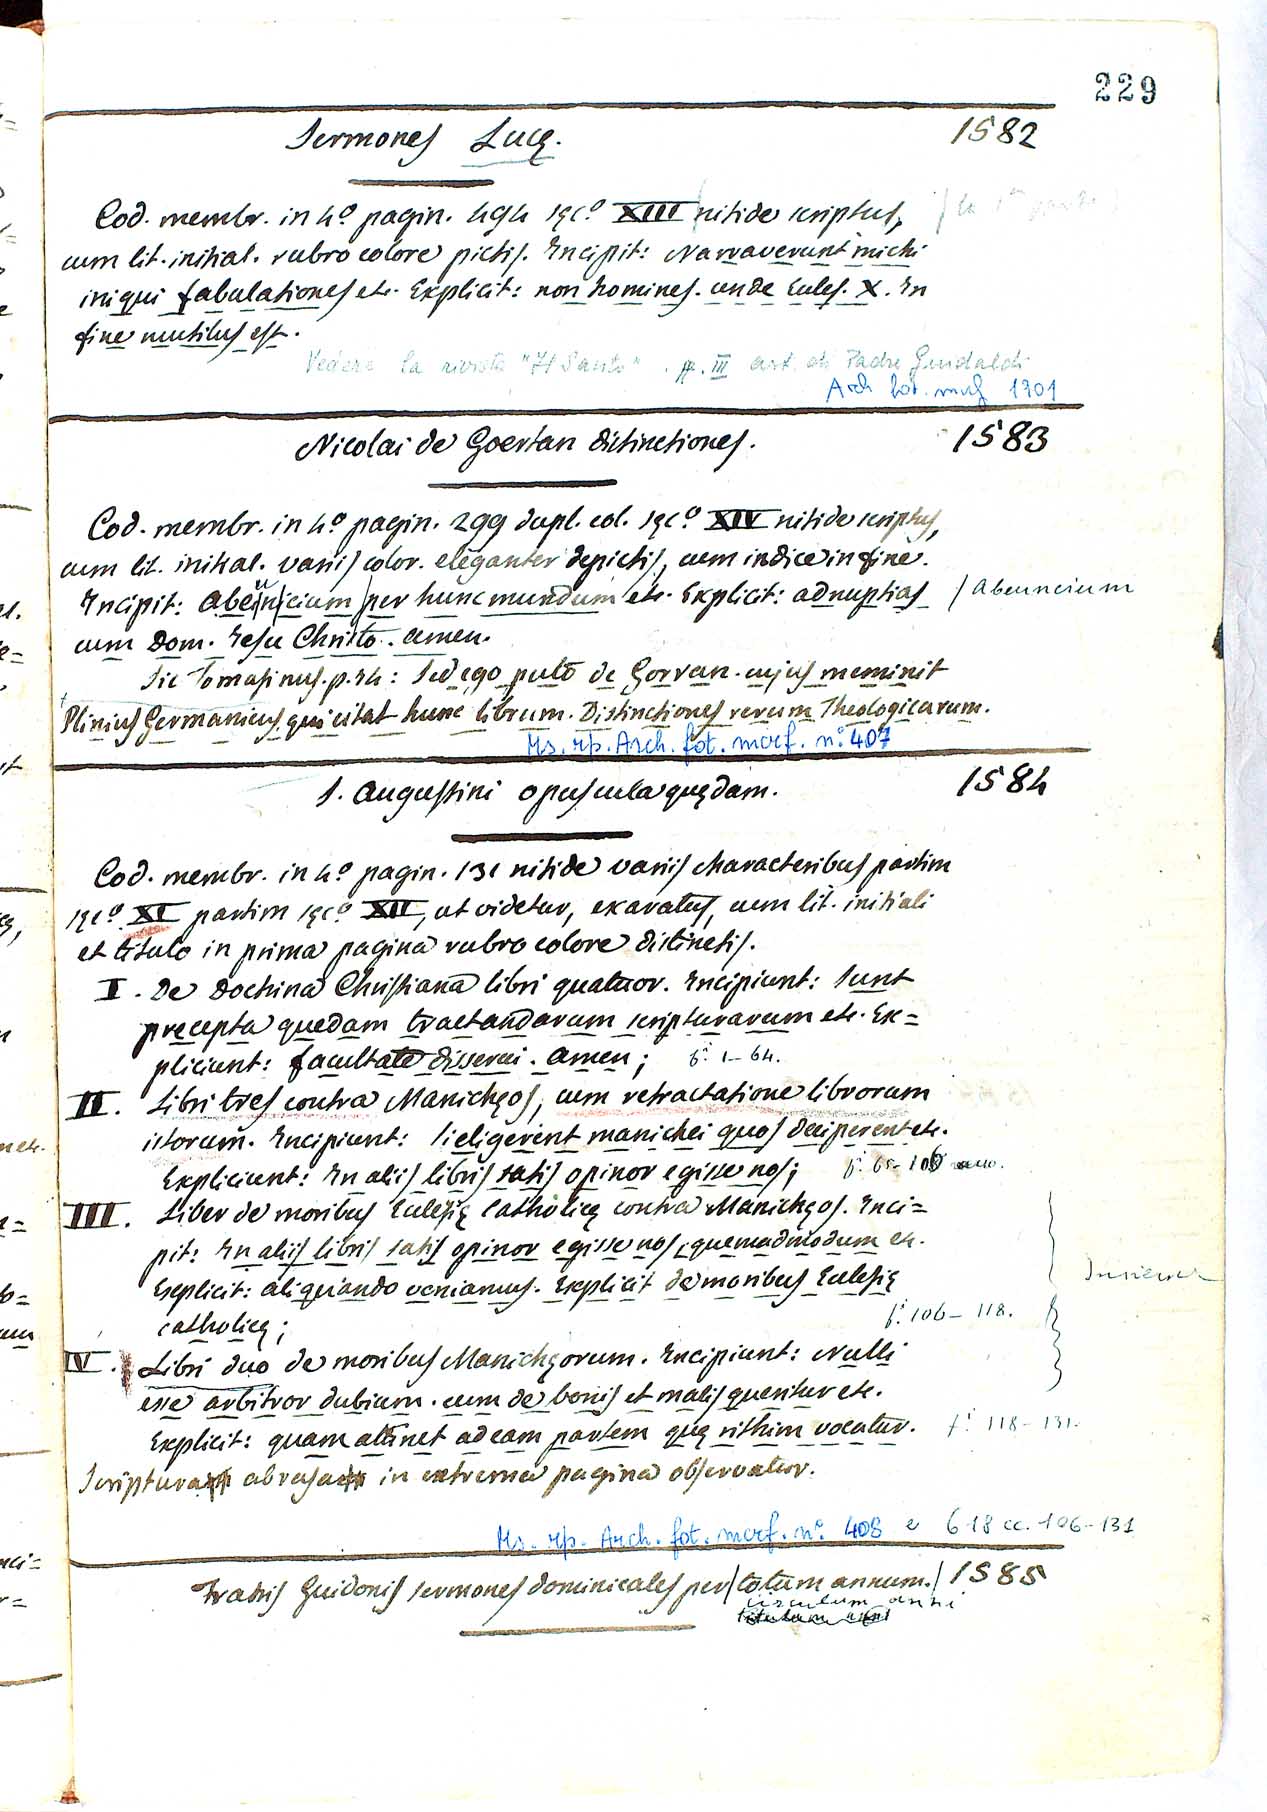 229
Sermones Lucę. 1582
Cod. membr. in 4º pagin. 494 sęc.º XIII nitide scriptus,
cum lit. initial. rubro colore pictis. Incipit: Narraverunt michi
iniqui fabulationes etc. Explicit: non homines. unde Eccles. X. In
fine mutilus est.
Vedere la rivista "Il Santo". III art. di Padre
Arch. fot. mcrf 1301
Nicolai de Goertan distinctiones. 1583
Cod. membr. in 4º pagin. 299 dupl. col. sęc.º XIV nitide scriptus,
cum lit. initial. variis color. eleganter depictis, cum indice in fine.
Incipit: abeincium per hunc mundum etc. Explicit: ad nuptias / Abeuncium
cum Dom. Jesu Christo. amen.
Sic Tomasinus. p. 24: Sed ego puto de Gorran. cujus meminit
Plinius Germanicus qui citat hunc librum. Distinctiones rerum Theologicarum.
Ms. rp. Arch. fot. mcrf. nº. 407
S. Augustini opuscula quędam. 1584
Cod. membr. in 4º pagin. 131 nitide variis characteribus partim
sęc.º XI partim sęcº XII, ut videtur, exaratus, cum lit. initiali
et titulo in prima pagina rubro colore distinctis.
I. De Doctrina Christiana libri quatuor. Incipiunt: Sunt
precepta quedam tractandarum scripturarum etc. Ex=
pliciunt: facultate disserui. Amen; f.i 1-64.
II. Libri tres contra Manichęos, cum retractatione librorum
istorum. Incipiunt: Si eligerent manichei quos deciperent etc.
Expliciunt: In aliis libris satis opinor egisse nos; f.i 65-106
III. Liber de moribus Eclesię Catholicę contra Manichęos. Inci=
pit: In aliis libris satis opinor egisse nos, quemadmodum etc.
Explicit: aliquando veniamus. Explicit de moribus Eclesię
catholicę; f.i 106-118.
IV. Libri duo de moribus Manichęorum. Incipiunt: Nulli
esse arbitror dubium. cum de bonis et malis queritur etc.
Explicit: quam attinet ad eam partem quę rithim vocatur. f.i 118-131.
Scriptura abrasa in extrema pagina observatur.
Ms. rp. Arch. fot. mcrf. nº. 408 e 618 cc. 106-131
Fratris Guidonis sermones dominicales per totum annum. 1585
circulum anni